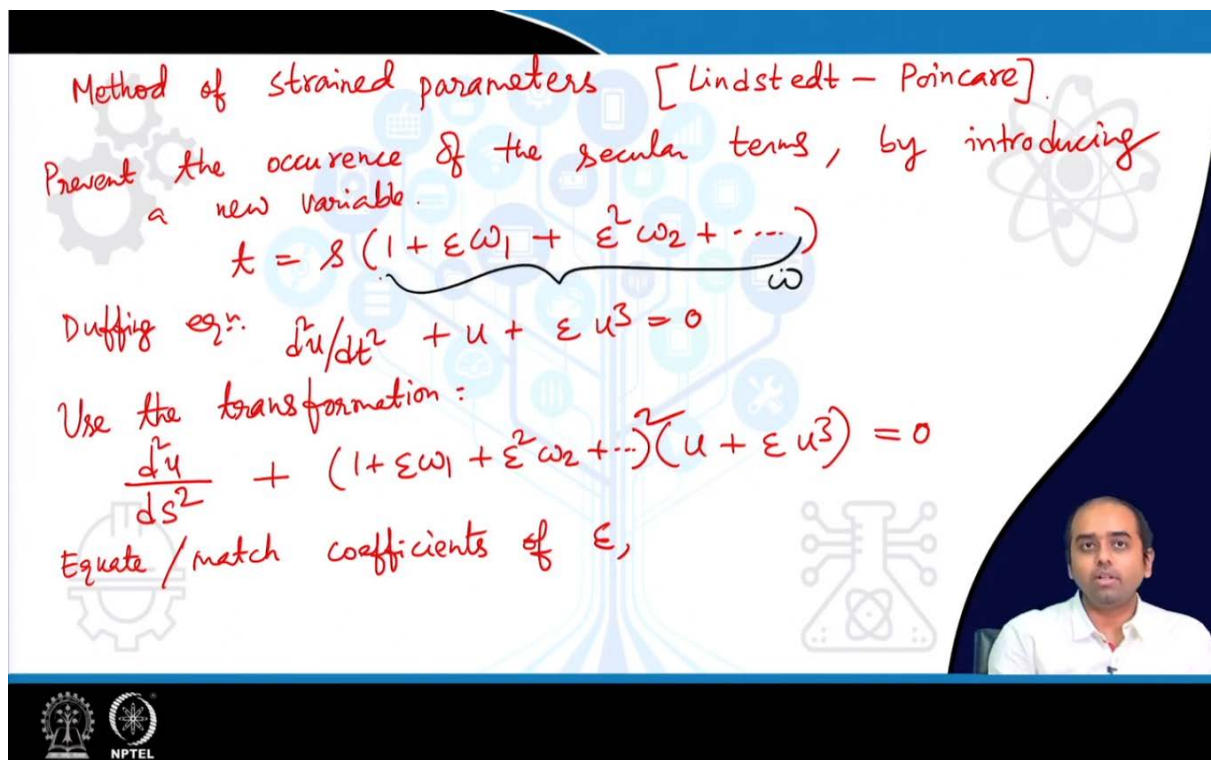 Method of strained parameters [Lindstedt - Poincare].
Prevent the occurence of the secular terms, by introducing
a new variable.
t = s(1 + εω₁ + ε²ω₂ + ....)
ω
Duffing eqⁿ. d²u/dt² + u + εu³ = 0
Use the transformation:
d²u/ds² + (1 + εω₁ + ε²ω₂ + ...)²(u + εu³) = 0
Equate/match coefficients of ε,
NPTEL